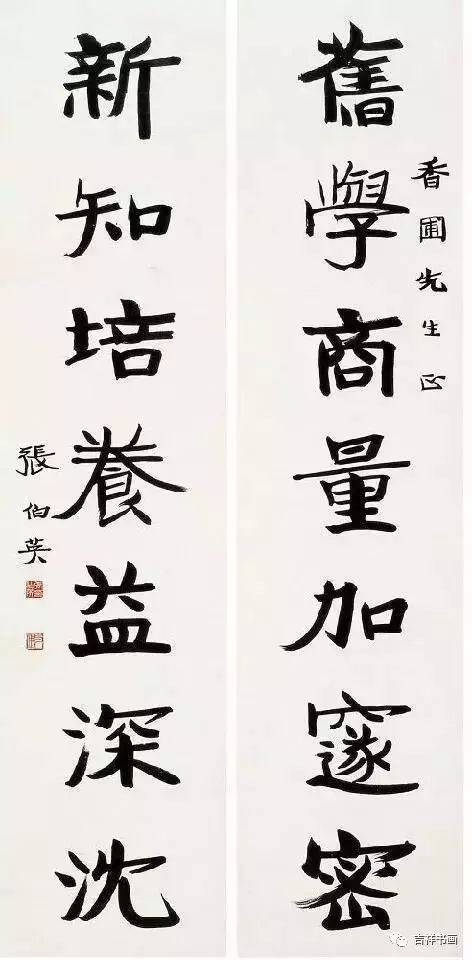 舊學商量加邃密
香圃先生正
新知培養益深沈
張伯英
吉祥书画